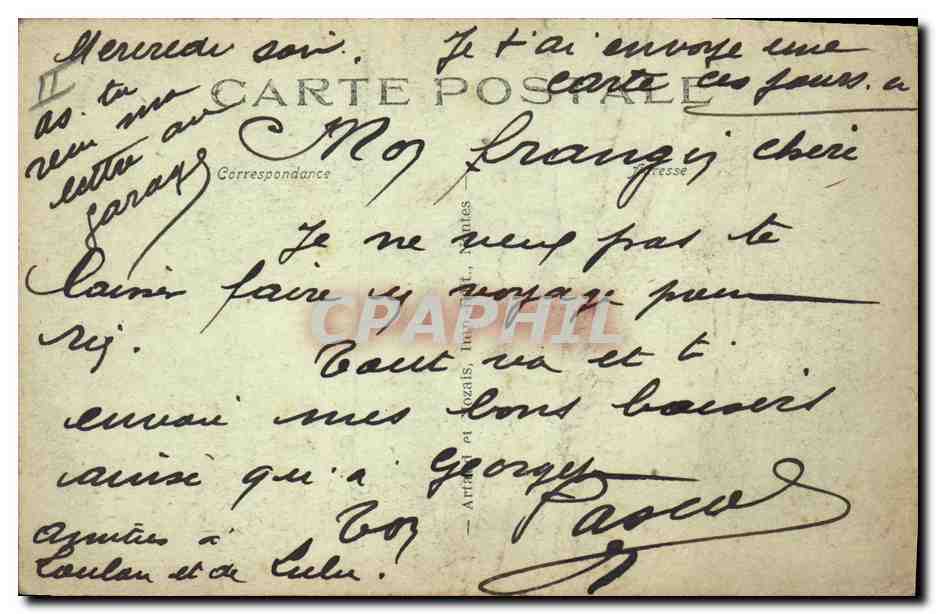 Mercredi soir.
Je t'ai envoyé une
carte ces jours. ci
II
CARTE POSTALE
as. tu
reçu ma
lettre au
garage
Mon frangin chéri
Correspondance
Adresse
Je ne veux pas te
laisser faire ce voyage pour
rien.
Tout va et t'
envoie mes bons baisers
ainsi qu'à Georges
Ton Pascal
Amitiés à
Loulou et de Lulu.
Nantes
CPAPHIL